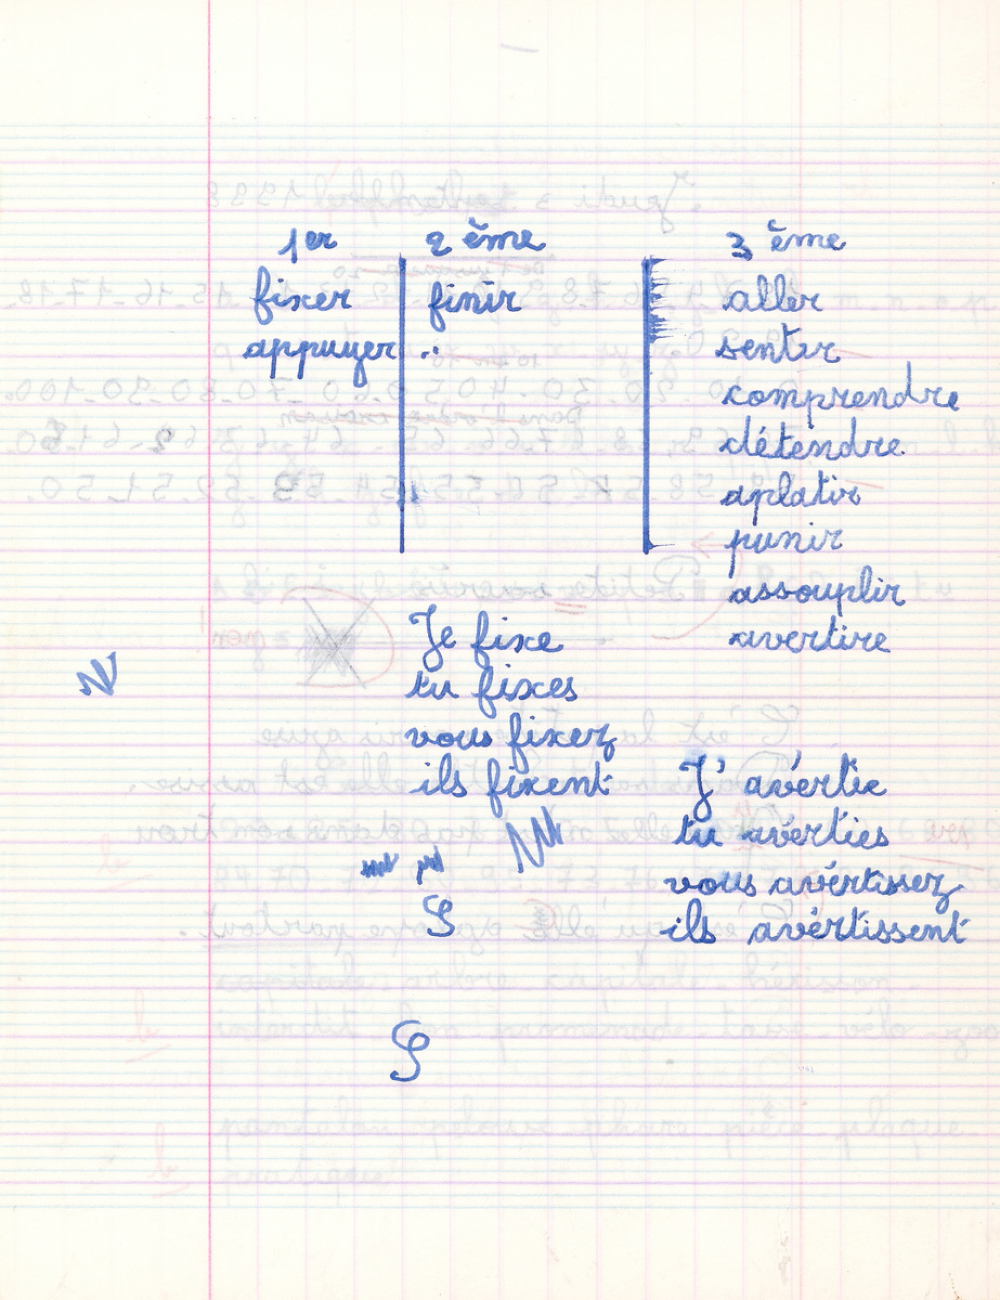 1er 2ème 3ème
fixer finir aller
appuyer .. sentir
comprendre
détendre
aplatir
punir
assouplir
Je fixe avertire
tu fixes
vous fixez
ils fixent J'avértie
tu avérties
vous avértissez
ils avértissent